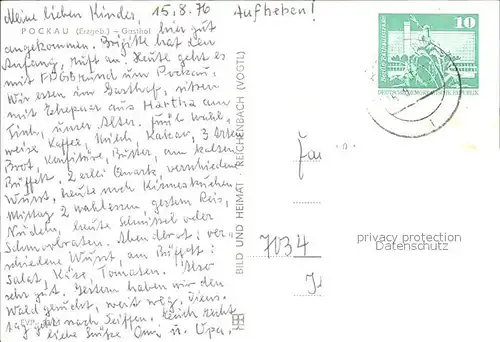 Meine lieben Kinder, 15.8.76 Aufheben!
POCKAU (Erzgeb.) — Gasthof
hier gut
angekommen. Brigitte hat den
Anfang, heute geht es
mit und um Pockau.
Wir essen im Gasthof, sitzen
mit Ehepaar aus Hartha am
Tisch, unser Alter. Früh wahl-
weise Kaffee, Milch, Kakao, 3 Arten
Brot, Konfitüre, Butter, am kalten
Büffett 2 erlei Quark, verschiedene
Wurst, heute noch
Mittag 2 wahlessen, gestern Reis,
Nudeln, heute Schnitzel oder
Schmorbraten. Abendbrot: ver-
schiedene Wurst, am Büffett:
Salat, Käse, Tomaten. Also
sehr gut. Gestern haben wir den
Wald gesucht, weit weg, Diens-
tag geht's nach Seiffen. Euch recht
liebe Grüße Omi u. Opa.
BILD UND HEIMAT · REICHENBACH (VOGTL)
10
7034
privacy protection
Datenschutz